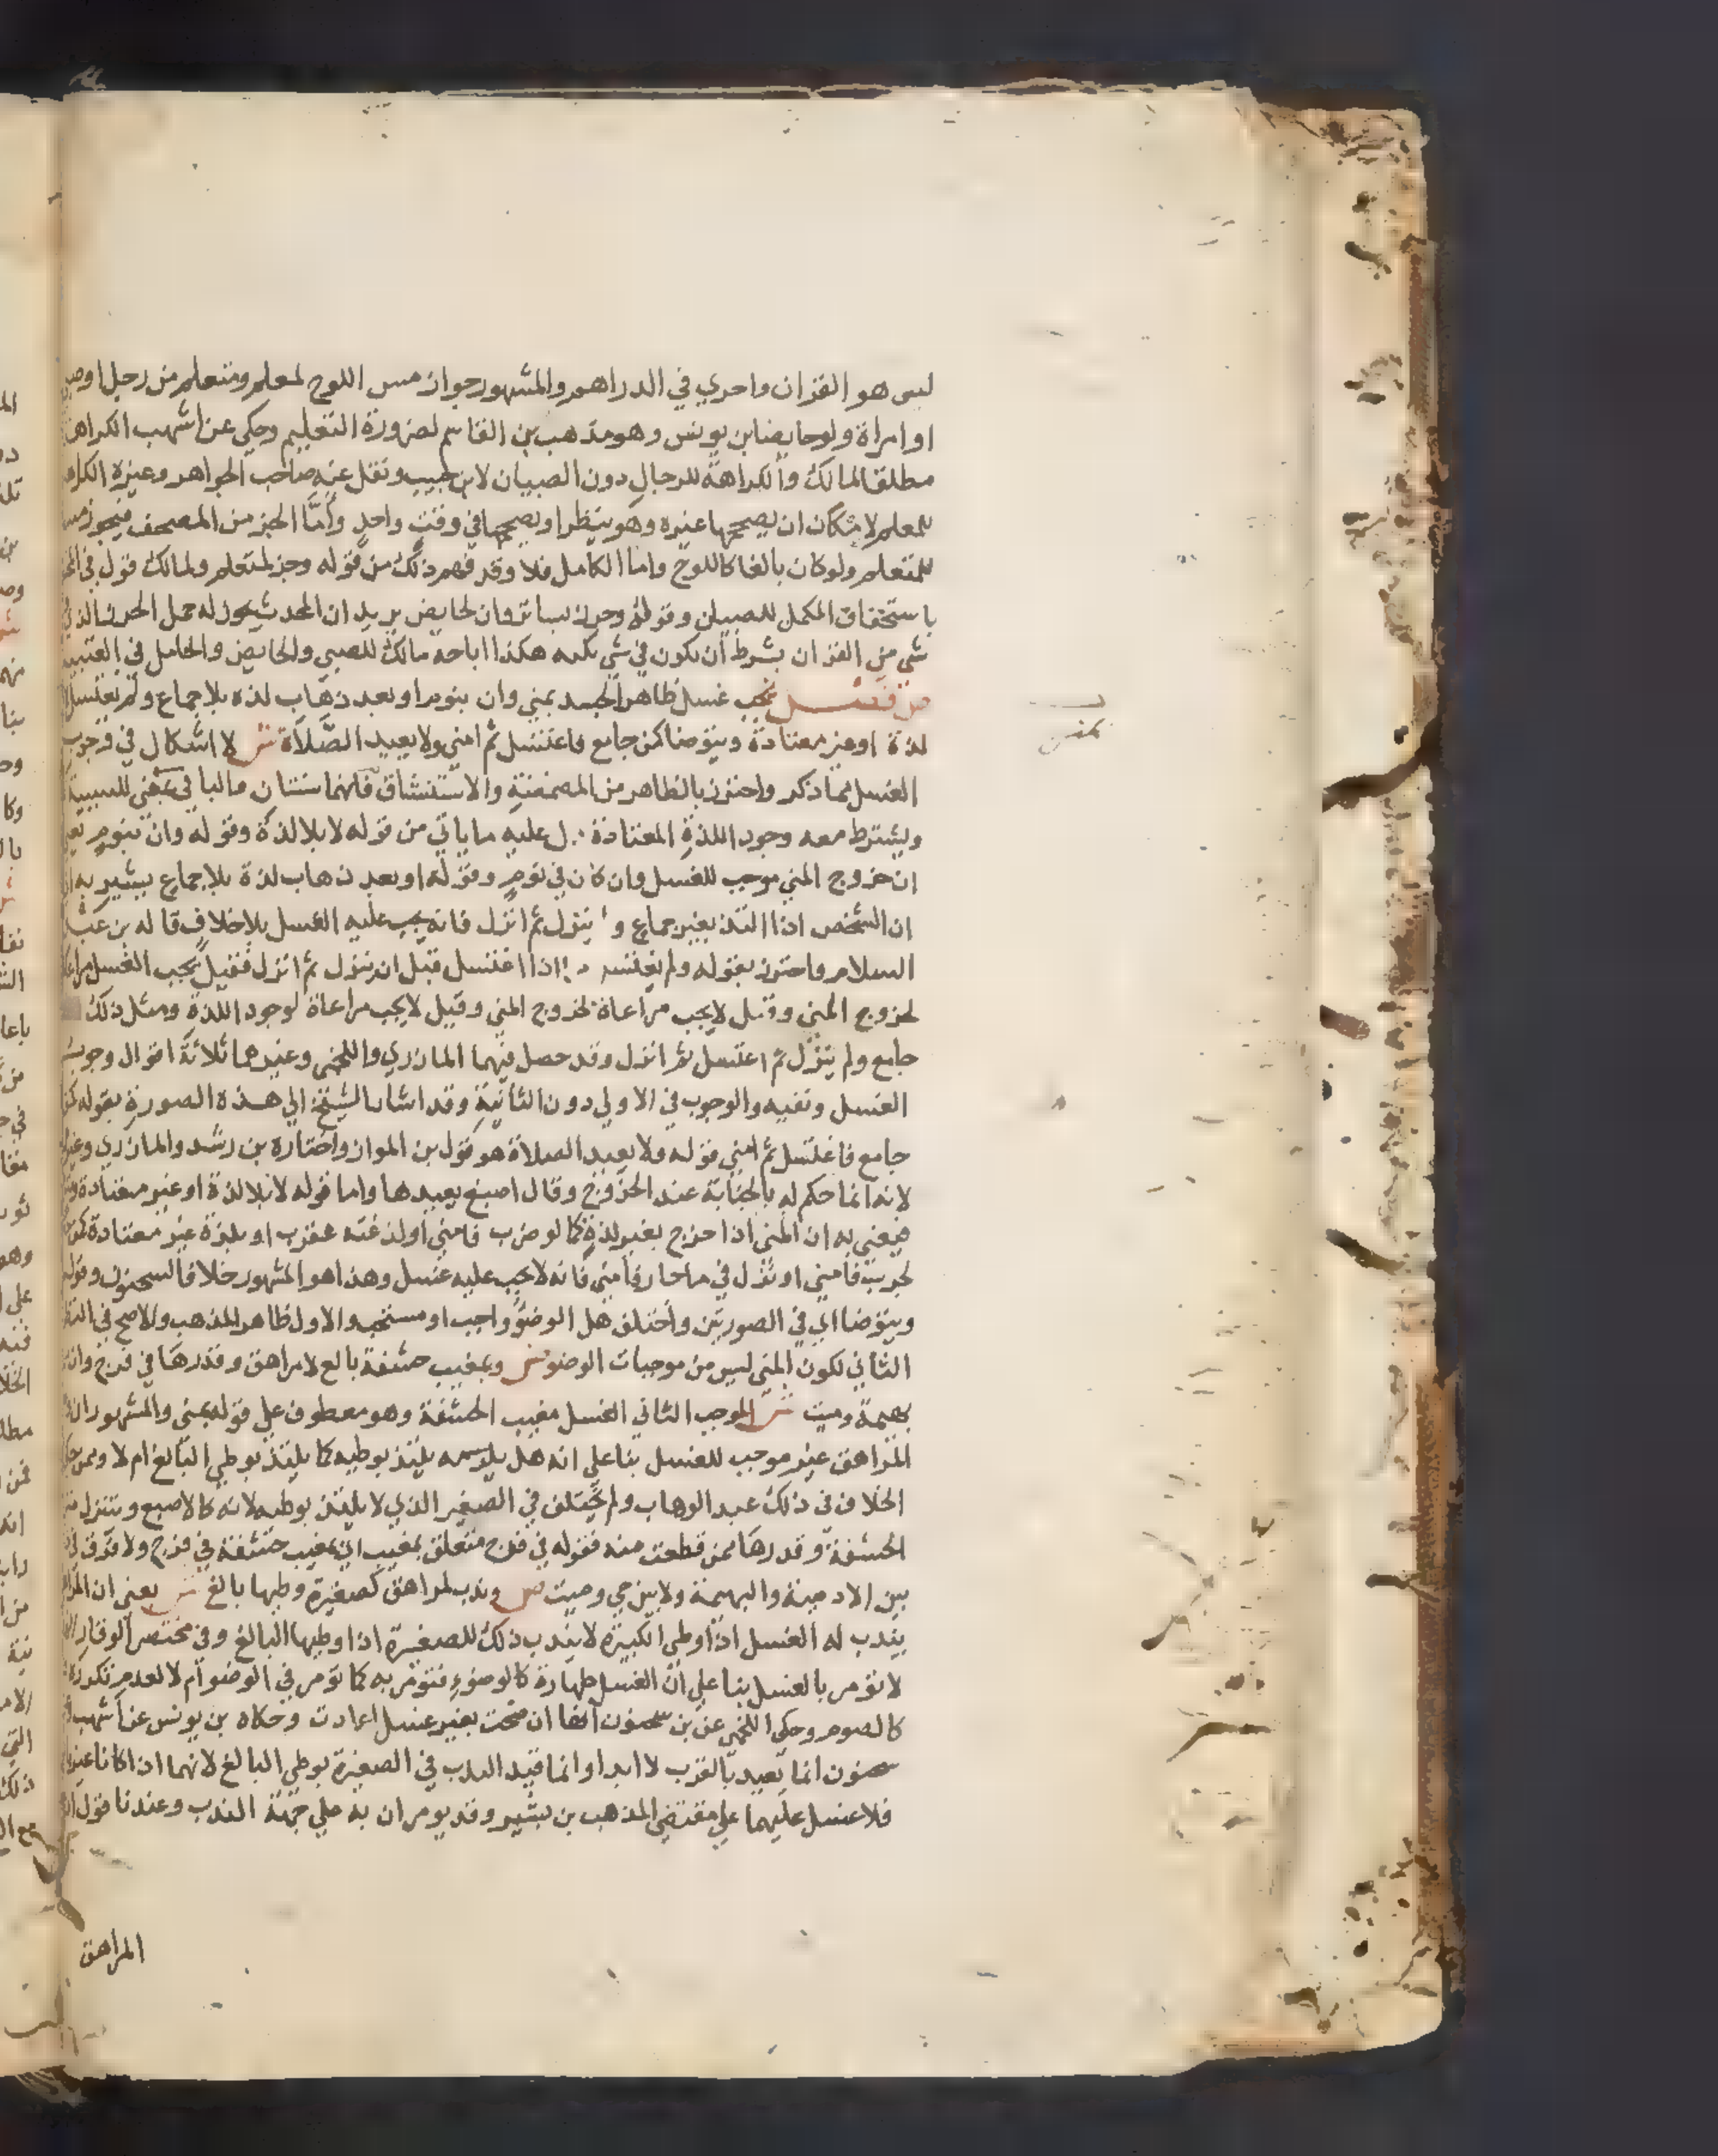 ليس هو القران واحري في الدراهم والمشهور جواز مس اللوح لمعلم ومتعلم من رجل او صبي
او امراة ولو حايضا بن يونس وهو مذهب بن القاسم لضرورة التعليم وحكي عن اشهب الكراهة
مطلقا لمالك والكراهة للرجال دون الصبيان لابن حبيب ونقل عنه صاحب الجواهر وغيره الكراهة
للمعلم لامكان ان يصححها غيره وهو ينظر او يصححها في وقت واحد وأمّا الجز من المصحف فيجوز مسه
للمتعلم ولو كان بالغا كاللوح واما الكامل فلا وقد فهم ذلك من قوله وجز لمتعلم ولمالك قول في
باستخفاف المكمل للصبيان وقوله وحرز بساتر وان لحايض يريد ان المحدث يجوز له حمل الحرز الذي
شي من القران بشرط أن يكون في شي يكنه هكذا اباحه مالك للصبي والحايض والحامل في العتبية
ص فصل يجب غسل ظاهر الجسد بمني وان بنوم او بعد ذهاب لذه بلا جماع ولم يغتسل لا
لذة او غير معتادة ويتوضا كمن جامع فاغتسل ثم امني ولا يعيد الصَّلاة ش لا اشكال في وجوب
الغسل بما ذكر واحترز بالظاهر من المضمضة والاستنشاق فانهما سنتان والبا في بمني للسببية
ويشترط معه وجود اللذة المعتادة دل عليه ما ياتي من قوله لا بلا لذة وقوله وان بنوم يعني
ان خروج المني موجب للغسل وان كان في نوم وقوله او بعد ذهاب لذة بلا جماع يشير به
ان الشخص اذا التذ بغير جماع ولم ينزل ثم انزل فانه يجب عليه الغسل بلا خلاف قاله بن عبد
السلام واحترز بقوله ولم يغتسل اذا اغتسل قبل ان ينزل ثم انزل فقيل يجب الغسل مراعاة
لخروج المني وقيل لا يجب مراعاة لخروج المني وقيل لا يجب مراعاة لوجود اللذة ومثل ذلك
جامع ولم ينزل ثم اغتسل ثم انزل وقد حصل فيهما المازري واللخمي وغيرهما ثلاثة اقوال وجوب
الغسل ونفيه والوجوب في الاولي دون الثانية وقد اشار الشيخ الي هذة الصورة بقوله كمن
جامع فاغتسل ثم امني قوله ولا يعيد الصلاة هو قول بن المواز واختاره بن رشد والمازري وغيره
لانه انما حكم له بالجنابة عند الخروج وقال اصبغ يعيدها واما قوله لا بلا لذة او غير معتادة
فيعني به ان المني اذا خرج بغير لذة كما لو ضرب فامني او لذغته عقرب او بلذة غير معتادة كمن
لجربت فامني او نزل في ماحار فأمني فانه لا يجب عليه غسل وهذا هو المشهور خلافا لسحنون وقوله
ويتوضا اي في الصورتين واختلف هل الوضوء واجب او مستحب والاول ظاهر المذهب والاصح في النظر
الثاني لكون المني ليس من موجبات الوضو ص وبمغيب حشفة بالغ لا مراهق وقدرها في فرج وان
بهيمة وميت ش الموجب الثاني الغسل مغيب الحشفة وهو معطوف علي قوله بمني والمشهور ان
المراهق غير موجب للغسل بنا علي انه هل يلتذ بوطيه كما يلتذ بوطي البالغ ام لا وممن حكي
الخلاف في ذلك عبد الوهاب ولم يختلف في الصغير الذي لا يلتذ بوطيه لانه كالاصبع ويتنزل
الحشفة وقدرها ممن قطعت منه فقوله في فرج متعلق بمغيب اي بمغيب حشفة في فرج ولا فرق في
بين الادمية والبهيمة ولا بين حي وميت ص وندب لمراهق كصغيرة وطيها بالغ ش يعني ان المراهق
يندب له الغسل اذا وطي الكبيرة لا يندب ذلك للصغيرة اذا وطيها البالغ وفي مختصر الوقار
لا تومر بالغسل بنا علي انّ الغسل طهارة كالوضوء فتومر به كما تومر في الوضو أم لا لعدم تكرره
كالصوم وحكي اللخمي عن بن سحنون انها ان صحت بغير غسل اعادت وحكاه بن يونس عن أشهب
سحنون انما تعيد بالقرب لا ابدا وانما قيد الندب في الصغيرة بوطي البالغ لانهما اذا كانا غير
فلا غسل عليهما علي مقتضي المذهب بن بشير وقد يومران به علي جهة الندب وعندنا قول
المراهق